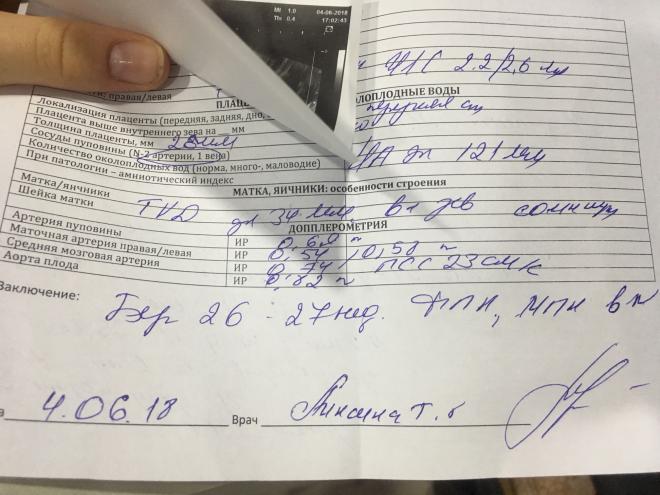 MI 1.0 04-06-2018
TIs 0.4 17:02:43
правая/левая
2.2/2,6
ПЛАЦЕ
ОПЛОДНЫЕ ВОДЫ
Локализация плаценты (передняя, задняя, дно,
Плацента выше внутреннего зева на __ мм
Толщина плаценты, мм 28мм
Сосуды пуповины (N-2 артерии, 1 вена)
Количество околоплодных вод (норма, много-, маловодие)
При патологии – амниотический индекс 121 мм
МАТКА, ЯИЧНИКИ: особенности строения
Матка/яичники
Шейка матки 34 мм, вн зев сомкнут
ДОППЛЕРОМЕТРИЯ
Артерия пуповины ИР
Маточная артерия правая/левая ИР 0,54 / 0,58
Средняя мозговая артерия ИР 0,74 ПСС 23 см
Аорта плода ИР 0,82
Заключение:
Бер 26-27нед. ФПК, МПК в N
4.06.18 Врач